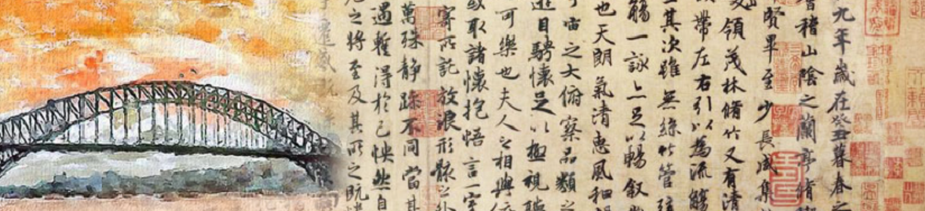 九年歲在癸丑暮春之
稽山陰之蘭亭脩
賢畢至少長咸集
領茂林脩竹又有清
帶左右引以為流觴
其次雖無絲竹管弦
觴一詠亦足以暢敘
也天朗氣清惠風和
宙之大俯察品類
遊目騁懷足以極視聽
可樂也夫人之相與
或取諸懷抱悟言一室
寄所託放浪形骸之
萬殊靜躁不同當其
遇蹔得於己怏然自
之將至及其所之既